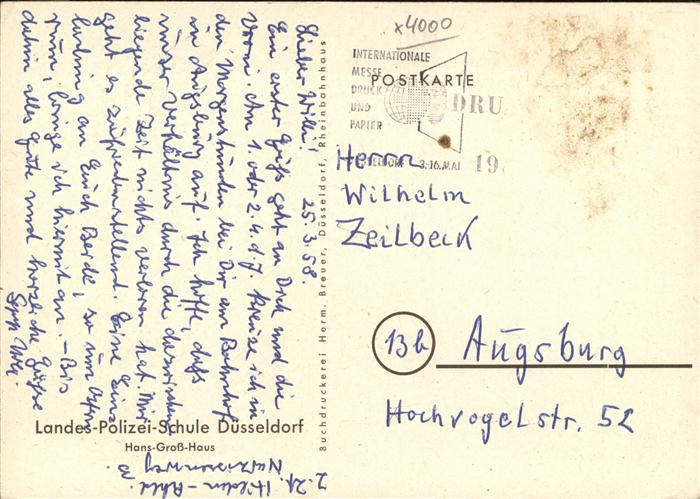 x4000
INTERNATIONALE
MESSE
DRUCK
UND
PAPIER
DÜSSELDORF 3.-16. MAI
DRU
19
POSTKARTE
Herrn
Wilhelm
Zeilbeck
13b Augsburg
Hochvogelstr. 52
25.3.58.
Lieber Willi!
Ein erster Gruß geht an Dich und die
Vroni. Am 1. oder 2.4. d.J. kreuze ich in
den Morgenstunden bei Dir am Bahnhof
in Augsburg auf. Ich hoffe, daß
unser Verhältnis durch die dazwischen
liegende Zeit nichts verloren hat. Mir
geht es zufriedenstellend. Eine Ein-
ladung an Euch Beide, so um Ostern
rum, bringe ich hiermit an. – Bis
dahin alles Gute und herzliche Grüße
Buchdruckerei Herm. Breuer, Düsseldorf, Rheinbahnhaus
Landes-Polizei-Schule Düsseldorf
Hans-Groß-Haus
z.Zt. Hilden-Rhld.
Narzissenweg